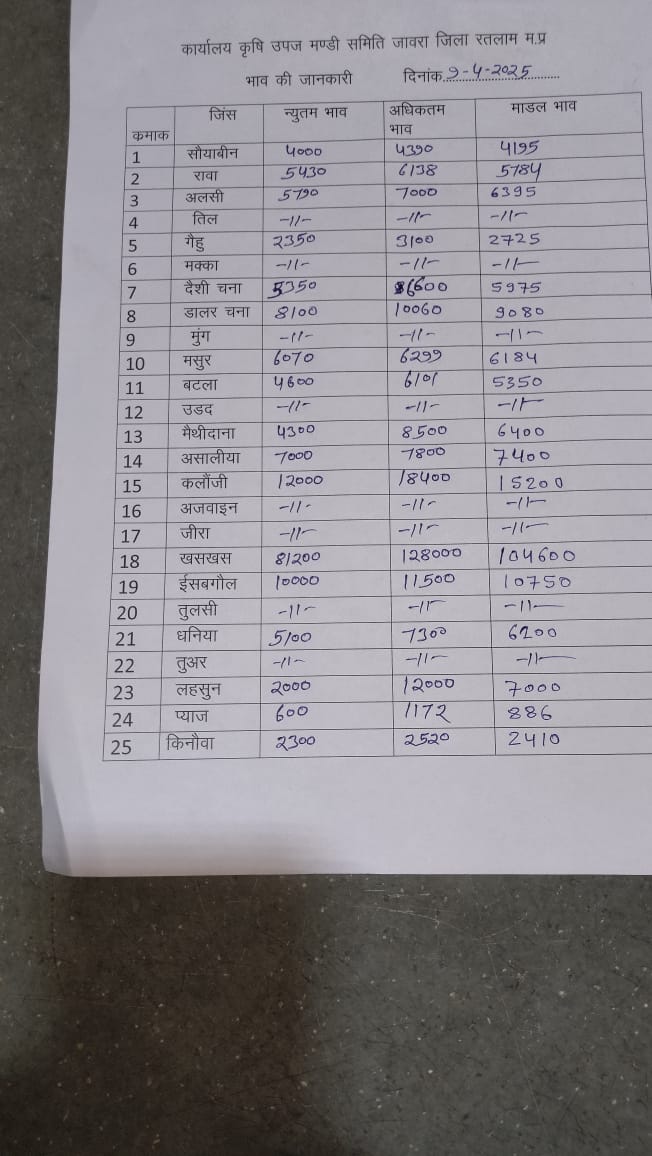 कार्यालय कृषि उपज मण्डी समिति जावरा जिला रतलाम म.प्र
भाव की जानकारी दिनांक 9-4-2025
कमाक जिंस न्युतम भाव अधिकतम भाव माडल भाव
1 सौयाबीन 4000 4390 4195
2 रावा 5430 6138 5784
3 अलसी 5790 7000 6395
4 तिल -11- -11- -11-
5 गैहु 2350 3100 2725
6 मक्का -11- -11- -11-
7 दैशी चना 5350 6600 5975
8 डालर चना 8100 10060 9080
9 मुंग -11- -11- -11-
10 मसुर 6070 6299 6184
11 बटला 4600 6101 5350
12 उडद -11- -11- -11-
13 मैथीदाना 4300 8500 6400
14 असालीया 7000 7800 7400
15 कलौंजी 12000 18400 15200
16 अजवाइन -11- -11- -11-
17 जीरा -11- -11- -11-
18 खसखस 81200 128000 104600
19 ईसबगौल 10000 11500 10750
20 तुलसी -11- -11- -11-
21 धनिया 5100 7300 6200
22 तुअर -11- -11- -11-
23 लहसुन 2000 12000 7000
24 प्याज 600 1172 886
25 किनौवा 2300 2520 2410